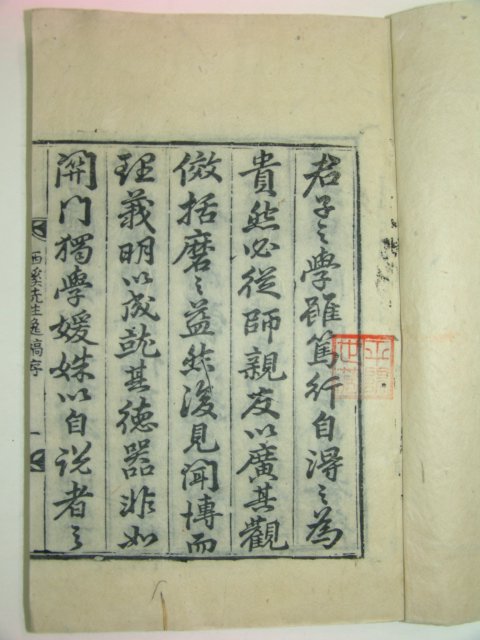 君子之學雖篤行自得之為
貴然必從師親友以廣其觀
儆括磨之益然後見聞博而
理義明以成就其德器非如
閉門獨學媛姝以自說者之
西溪先生逸稿序
一